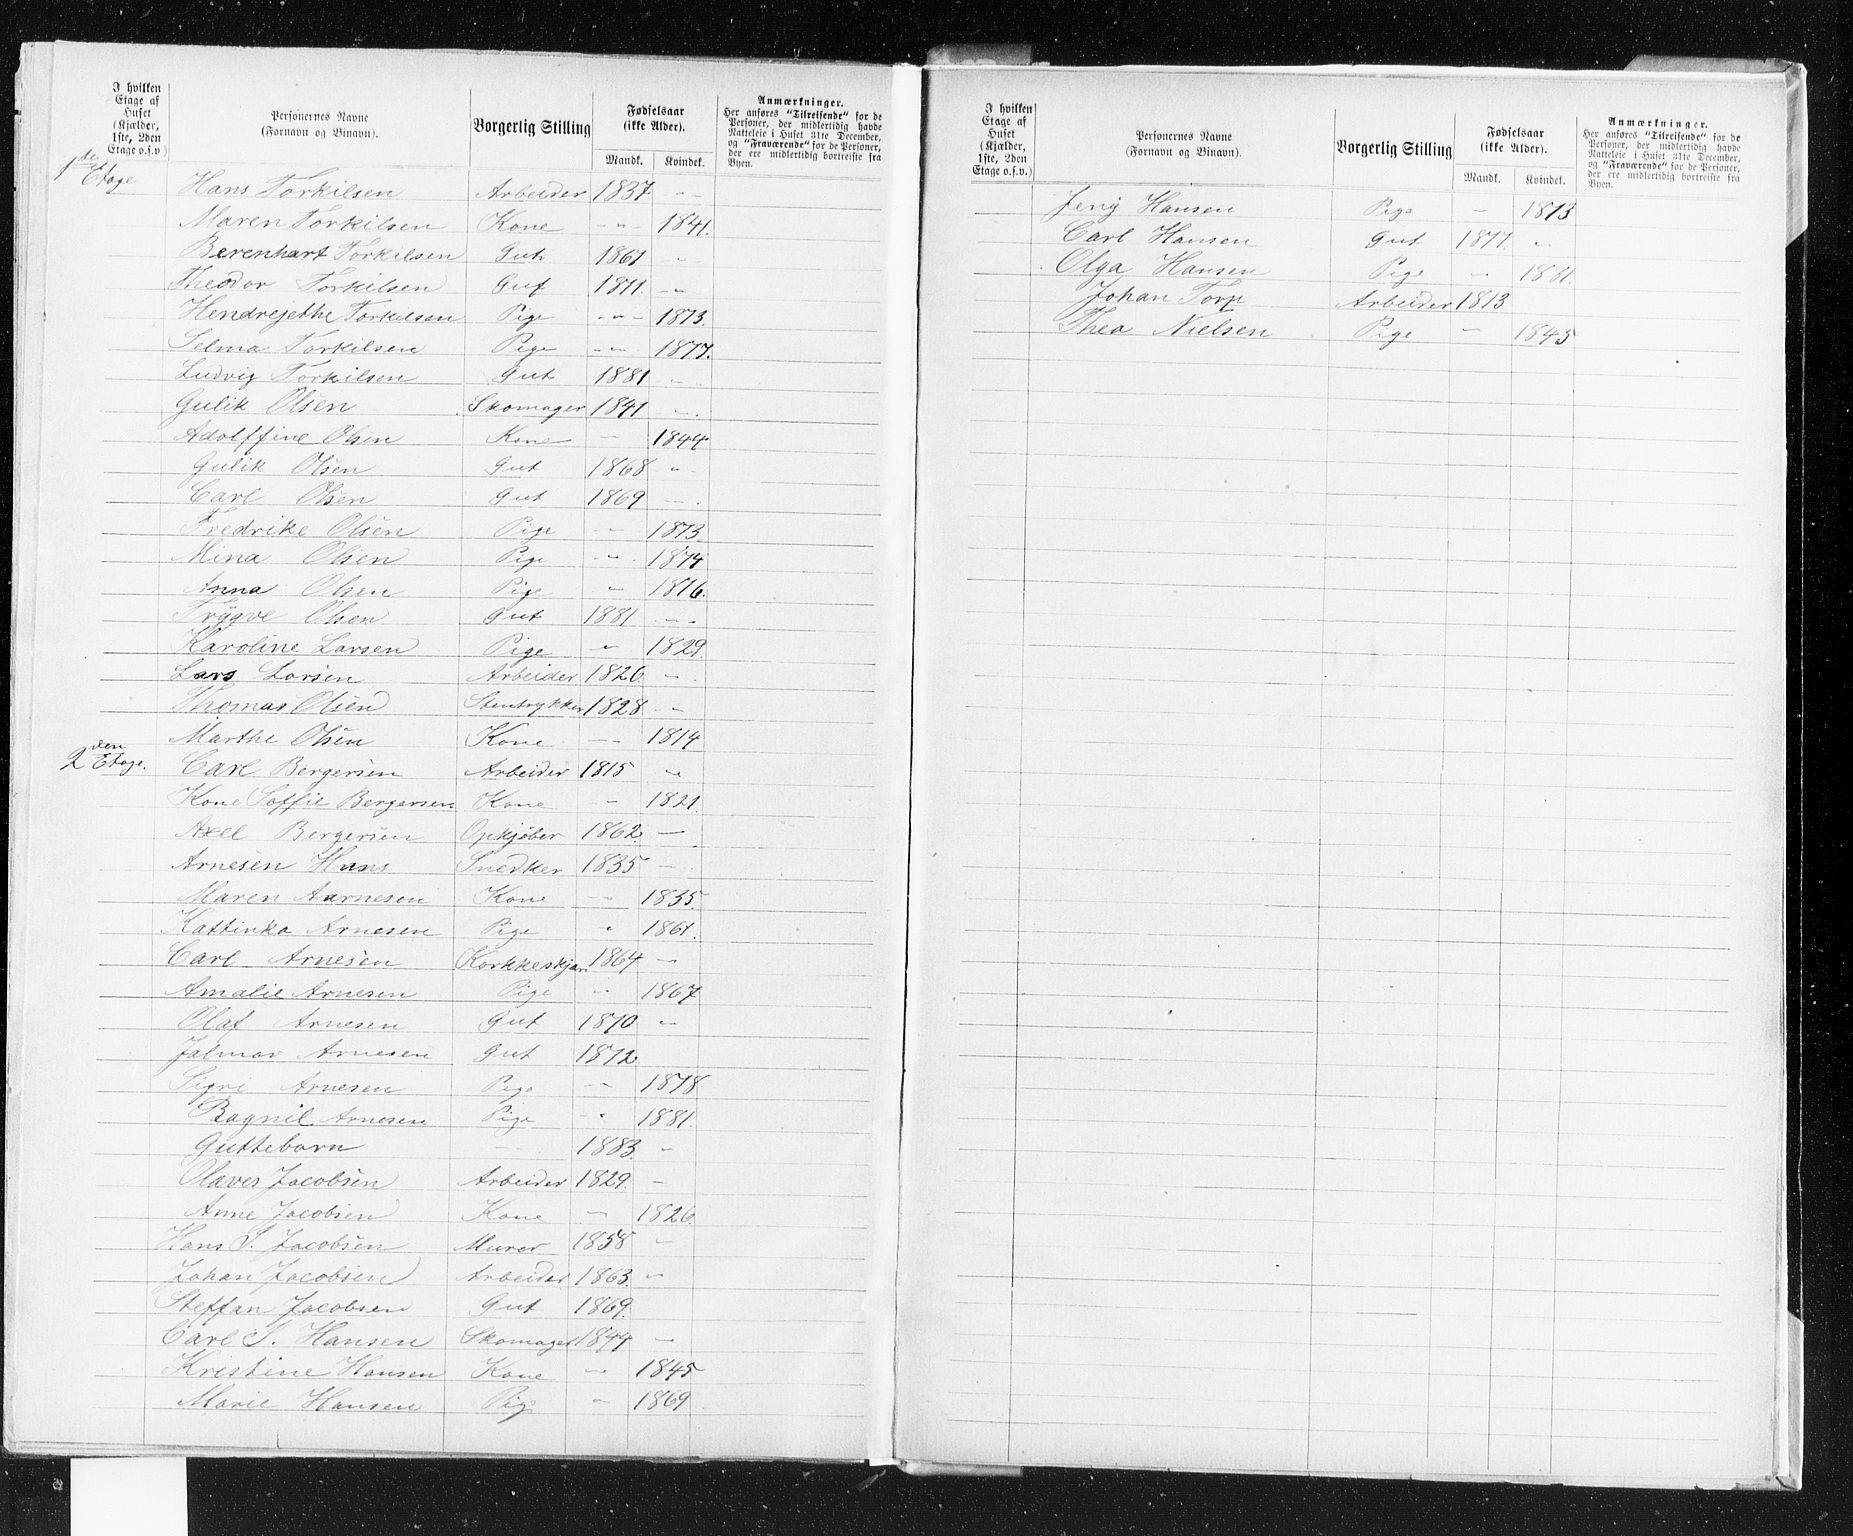 I hvilken Etage af Huset (Kjælder, 1ste, 2den Etage o.s.v.) | Personernes Navne (Fornavn og Tilnavn). | Borgerlig Stilling | Fødselsaar (ikke Alder). Mandk. Kvindek. | Anmærkninger. Her anføres "Tilreisende" for de Personer, der midlertidig havde Natteleie i Huset 31te December, og "Fraværende" for de Personer, der ere midlertidig bortreiste fra Byen.
1de Etage Hans Torkilsen Arbeider 1837 -"-
Maren Torkilsen Kone -"- 1841.
Berenhart Torkilsen Gut 1861 -"-
Theodor Torkilsen Gut 1871. -"-
Hendrejethe Torkilsen Pige -"- 1873.
Selma Torkilsen Pige -"- 1877.
Ludvig Torkilsen Gut 1881 -"-
Gulik Olsen Skomager 1841 -"-
Adolffine Olsen Kone -"- 1844
Gulik Olsen Gut 1868 "
Carl Olsen Gut 1869 -"-
Fredrike Olsen Pige -"- 1873.
Mina Olsen Pige -"- 1874
Anna Olsen Pige -"- 1876.
Trygve Olsen Gut 1881 -"-
Karoline Larsen Pige " 1829.
Lars Larsen Arbeider 1826 -"-
Thomas Olsen Stentrykker 1828 -"-
Marthe Olsen Kone -"- 1814
2den Etage. Carl Bergersen Arbeider 1815 -"-
Kone Soffie Bergersen Kone -"- 1821.
Axel Bergersen Opkjøber 1862. -"-
Arnesen Hans Snedker 1835 -"-
Maren Aarnesen Kone -"- 1835.
Kattinka Arnesen Pige " 1861.
Carl Arnesen Korkkeskjær 1864 -"-
Amalie Arnesen Pige -"- 1867
Olaf Arnesen Gut 1870 -"-
Jalmar Arnesen Gut 1872.
Sigri Arnesen Pige -"- 1878
Ragnil Arnesen Pige -"- 1881.
Guttebarn 1883. -"-
Olaves Jacobsen Arbeider 1829. -"-
Anne Jacobsen Kone -"- 1826.
Hans S. Jacobsen Murer 1858 -"-
Johan Jacobsen Arbeider 1863. -"-
Steffan Jacobsen Gut 1869.
Carl S. Hansen Skomager 1844 -"-
Kristine Hansen Kone -"- 1845
Marie Hansen Pige -"- 1869
I hvilken Etage af Huset (Kjælder, 1ste, 2den Etage o.s.v.) | Personernes Navne (Fornavn og Tilnavn). | Borgerlig Stilling | Fødselsaar (ikke Alder). Mandk. Kvindek. | Anmærkninger. Her anføres "Tilreisende" for de Personer, der midlertidig havde Natteleie i Huset 31te December, og "Fraværende" for de Personer, der ere midlertidig bortreiste fra Byen.
Jeny Hansen Pige -"- 1873
Carl Hansen Gut 1877. "
Olga Hansen Pige -"- 1881.
Johan Torp Arbeider 1813
Thea Nielsen Pige -"- 1845